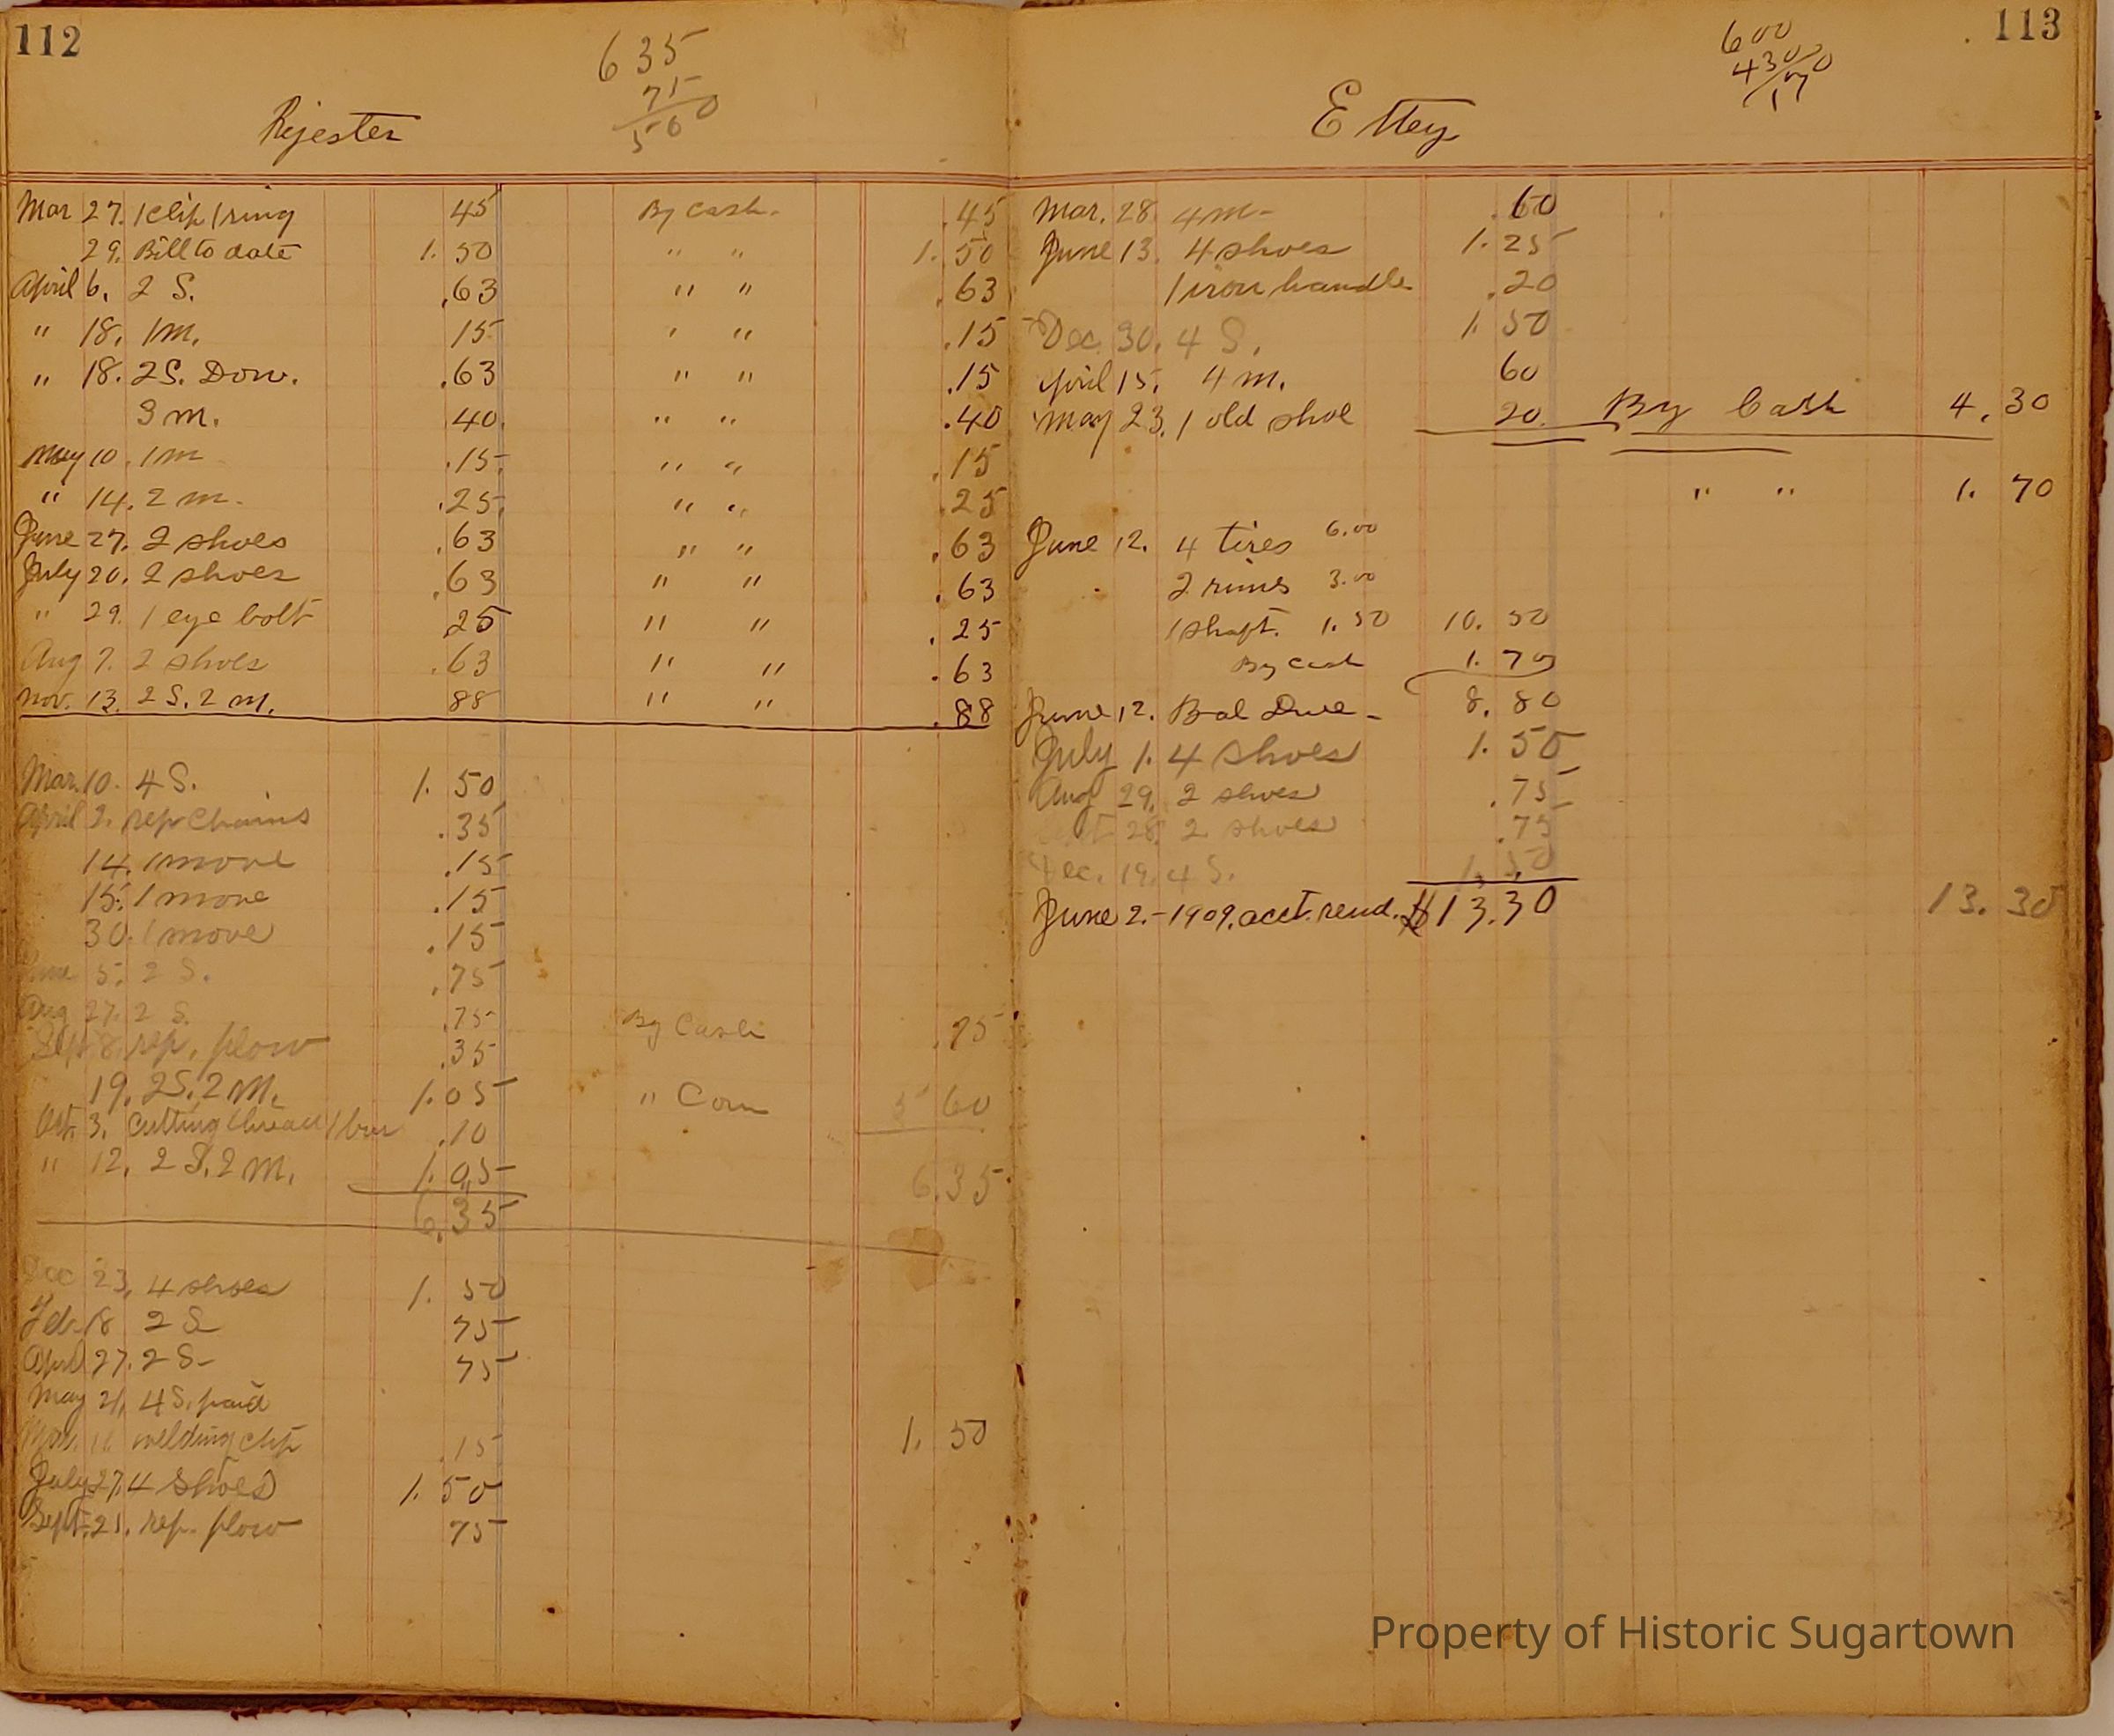 112
635
75
560
Rijester
Mar 27. 1 clip 1 ring 45 By Cash. .45
29. Bill to date 1. 50 " " 1. 50
April 6. 2 S. .63 " " .63
" 18. 1 m. 15 " " .15
" 18. 2 S. Dow. .63 " " .15
3 m. 40. " " .40
May 10. 1 m .15. " " .15
" 14. 2 m. .25. " " .25
June 27. 2 shoes .63 " " .63
July 20. 2 shoes .63 " " .63
" 29. 1 eye bolt 25 " " .25
Aug 7. 2 shoes .63 " " .63
Nov. 13. 2 S. 2 m. 88 " " .88
Mar. 10. 4 S. 1. 50
April 2. rep chains .35
14. 1 move .15
15. 1 move .15
30. 1 move .15
June 5. 2 S. .75
Aug 27. 2 S. .75 By Cash .75
Sept 8. rep. plow .35
19. 2 S. 2 M. 1.05 " Corn 5 60
Oct. 3. Cutting thread 1 bur .10
" 12. 2 S. 2 M. 1.05 6.35
6.35
Dec 23. 4 shoes 1. 50
Feb. 18 2 S 75
April 27. 2 S- 75
May 21. 4 S. paid 1. 50
welding clip .15
July 27. 4 shoes 1. 50
Sept. 21. rep. plow 75
113
600
430
170
Ettey
Mar. 28. 4 m- .60
June 13. 4 shoes 1. 25
1 iron handle .20
Dec. 30. 4 S. 1. 50
April 15. 4 m. 60
May 23. 1 old shoe 20. By Cash 4. 30
" " 1. 70
June 12. 4 tires 6.00
2 rims 3.00
1 shaft. 1. 50 10. 50
By cash 1. 70
June 12. Bal Due - 8. 80
July 1. 4 shoes 1. 50
Aug 29. 2 shoes .75
28. 2 shoes .75
Dec. 19. 4 S. 1. 50
June 2.- 1909. acct. rend. $13.30 13. 30
Property of Historic Sugartown